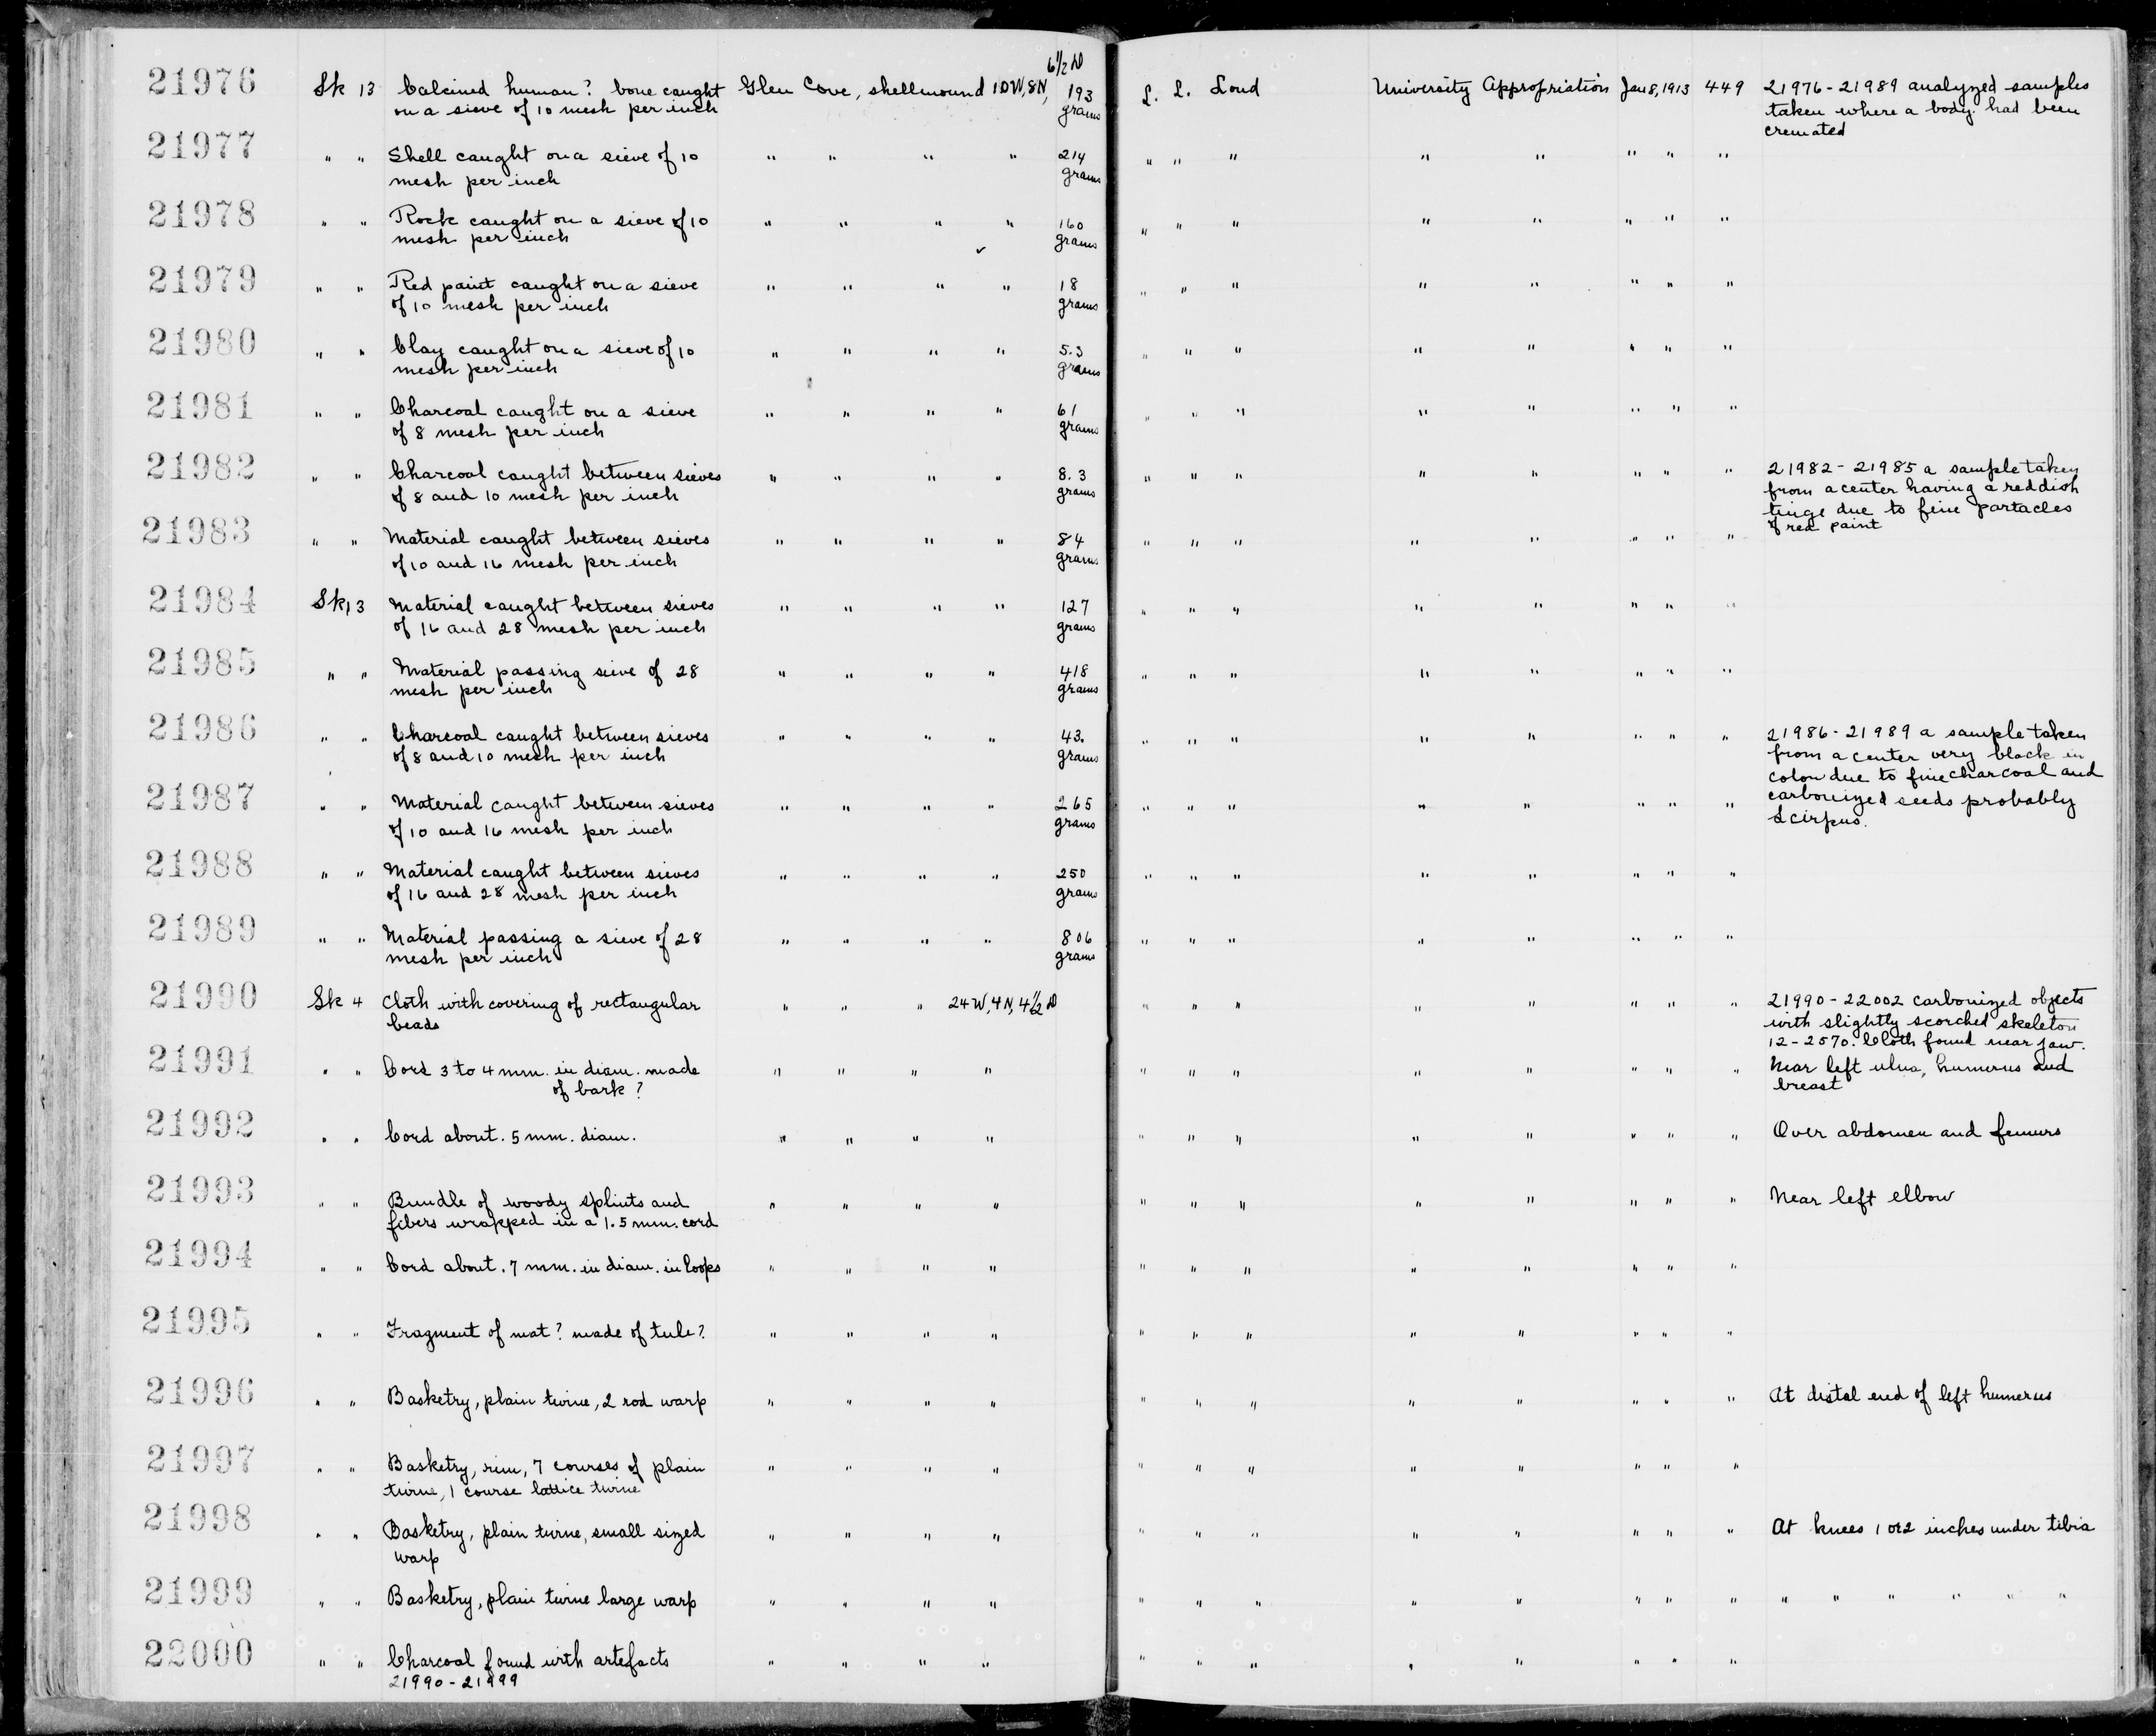 6 1/2 D
21976 Sk 13 Calcined human? bone caught Glen Cove, shellmound 10W, 8N, 193 L. L. Loud University Appropriation Jan 8, 1913 449 21976 - 21989 analyzed samples
on a sieve of 10 mesh per inch grams taken where a body had been
cremated
21977 " " Shell caught on a sieve of 10 " " " " 214 " " " " " " " "
mesh per inch grams
21978 " " Rock caught on a sieve of 10 " " " " 160 " " " " " " " "
mesh per inch grams
21979 " " Red paint caught on a sieve " " " " 18 " " " " " " " "
of 10 mesh per inch grams
21980 " " Clay caught on a sieve of 10 " " " " 5.3 " " " " " " " "
mesh per inch grams
21981 " " Charcoal caught on a sieve " " " " 61 " " " " " " " "
of 8 mesh per inch grams
21982 " " Charcoal caught between sieves " " " " 8.3 " " " " " " " " 21982 - 21985 a sample taken
of 8 and 10 mesh per inch grams from a center having a reddish
tinge due to fine partacles
of red paint
21983 " " Material caught between sieves " " " " 84 " " " " " " " "
of 10 and 16 mesh per inch grams
21984 Sk 13 Material caught between sieves " " " " 127 " " " " " " " "
of 16 and 28 mesh per inch grams
21985 " " Material passing sieve of 28 " " " " 418 " " " " " " " "
mesh per inch grams
21986 " " Charcoal caught between sieves " " " " 43. " " " " " " " " 21986 - 21989 a sample taken
of 8 and 10 mesh per inch grams from a center very black in
color due to fine charcoal and
21987 " " Material caught between sieves " " " " 265 " " " " " " " " carbonized seeds probably
of 10 and 16 mesh per inch grams Scirpus.
21988 " " Material caught between sieves " " " " 250 " " " " " " " "
of 16 and 28 mesh per inch grams
21989 " " Material passing a sieve of 28 " " " " 806 " " " " " " " "
mesh per inch grams
21990 Sk 4 Cloth with covering of rectangular " " " 24 W, 4 N, 4 1/2 D " " " " " " " " 21990 - 22002 carbonized objects
beads with slightly scorched skeleton
12-2570. Cloth found near jaw.
21991 " " Cord 3 to 4 mm. in diam. made " " " " " " " " " " " " Near left ulna, humerus and
of bark? breast
21992 " " Cord about .5 mm. diam. " " " " " " " " " " " " Over abdomen and femurs
21993 " " Bundle of woody splints and " " " " " " " " " " " " Near left elbow
fibers wrapped in a 1.5 mm. cord
21994 " " Cord about .7 mm. in diam. in loops " " " " " " " " " " " "
21995 " " Fragment of mat? made of tule? " " " " " " " " " " " "
21996 " " Basketry, plain twine, 2 rod warp " " " " " " " " " " " " At distal end of left humerus
21997 " " Basketry, rim, 7 courses of plain " " " " " " " " " " " "
twine, 1 course lattice twine
21998 " " Basketry, plain twine, small sized " " " " " " " " " " " " At knees 1 or 2 inches under tibia
warp
21999 " " Basketry, plain twine large warp " " " " " " " " " " " " " " " " " "
22000 " " Charcoal found with artefacts " " " " " " " " " " " "
21990 - 21999